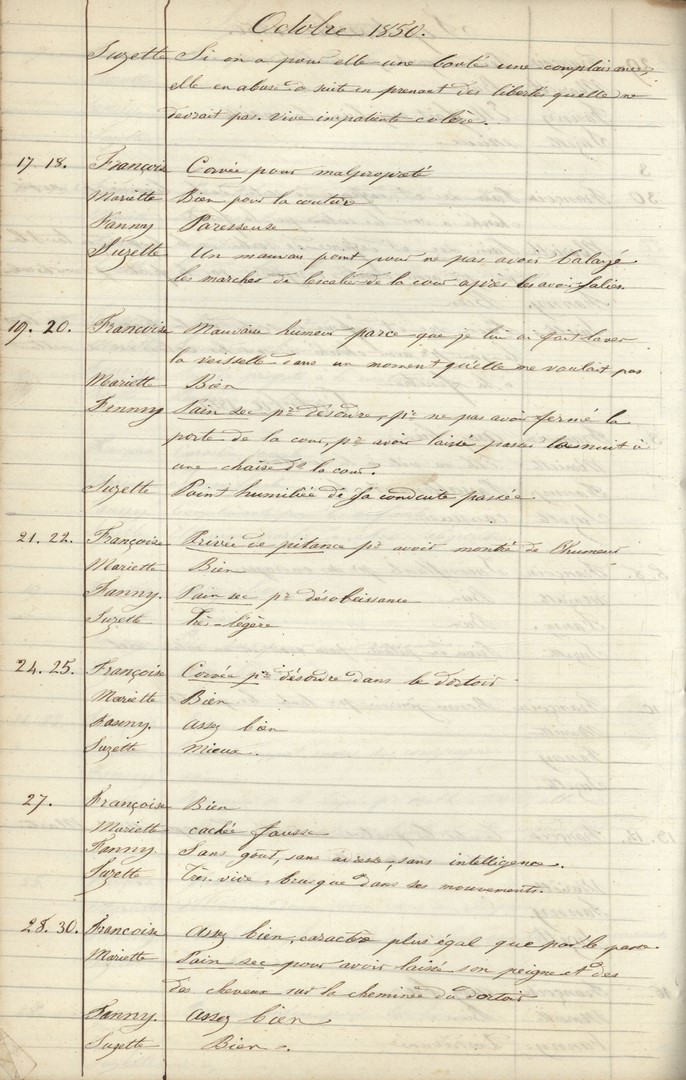 Octobre 1850.
Suzette Si on a pour elle une bonté une complaisance,
elle en abuse de suite en prenant des libertés qu'elle ne
devrait pas. vive impatiente colère.
17. 18. Françoise Corvée pour malpropreté
Mariette Bien pour la couture
Fanny Paresseuse
Suzette Un mauvais point pour ne pas avoir balayé
les marches de l'escalier de la cour après les avoir salies.
19. 20. Françoise Mauvaise humeur parce que je lui ai fait laver
la vaisselle dans un moment qu'elle ne voulait pas
Mariette Bien
Fanny Pain sec pr désordre, pr ne pas avoir fermé la
porte de la cour, pr avoir laissé passer la nuit à
une chaise ds la cour.
Suzette Point humiliée de sa conduite passée.
21. 22. Françoise Privée de pitance pr avoir montré de l'humeur
Mariette Bien
Fanny. Pain sec pr désobeissance
Suzette Très-légère
24. 25. Françoise Corvée pr désordre dans le dortoir
Mariette Bien
Fanny. assez bien
Suzette Mieux
27. Françoise Bien
Mariette cachée fausse
Fanny Sans goût, sans adresse, sans intelligence.
Suzette Très-vive, brusque dans ses mouvements.
28. 30. Françoise Assez bien, caractère plus égal que par le passé
Mariette Pain sec pour avoir laissé son peigne et des
des cheveux sur la cheminée du dortoir
Fanny. assez bien
Suzette Bien.